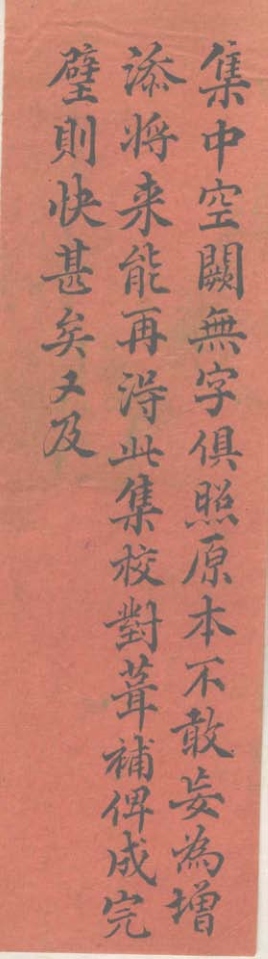 集中空闕無字俱照原本不敢妄為增
添將来能再淂此集校對葺補俾成完
璧則快甚矣又及